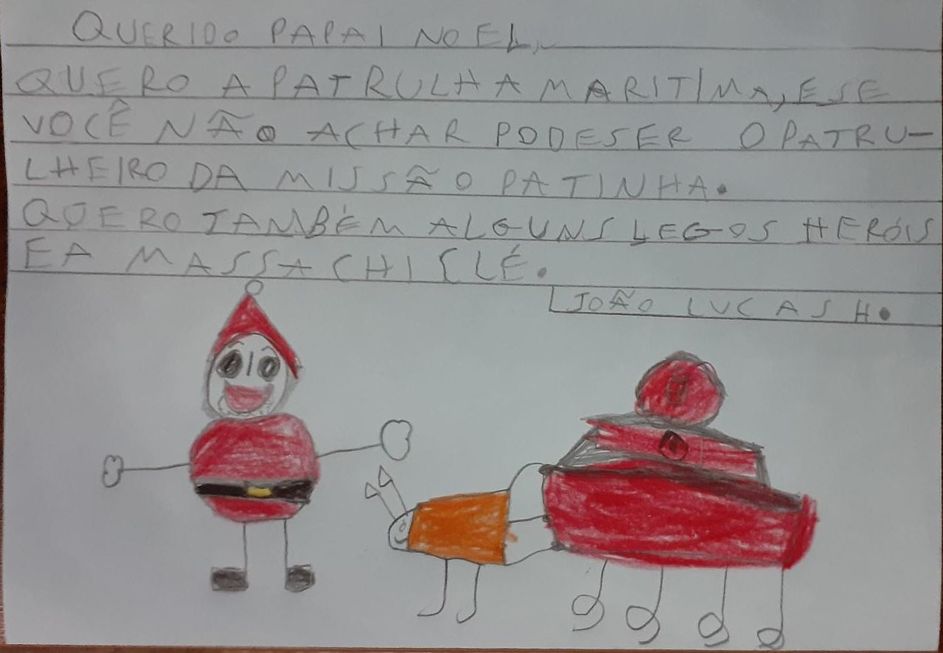 QUERIDO PAPAI NOEL,
QUERO A PATRULHA MARITIMA, E SE
VOCÊ NÃO ACHAR PODE SER O PATRU-
LHEIRO DA MISSÃO PATINHA.
QUERO TAMBÉM ALGUNS LEGOS HERÓIS
E A MASSA CHICLÉ.
JOÃO LUCAS H.